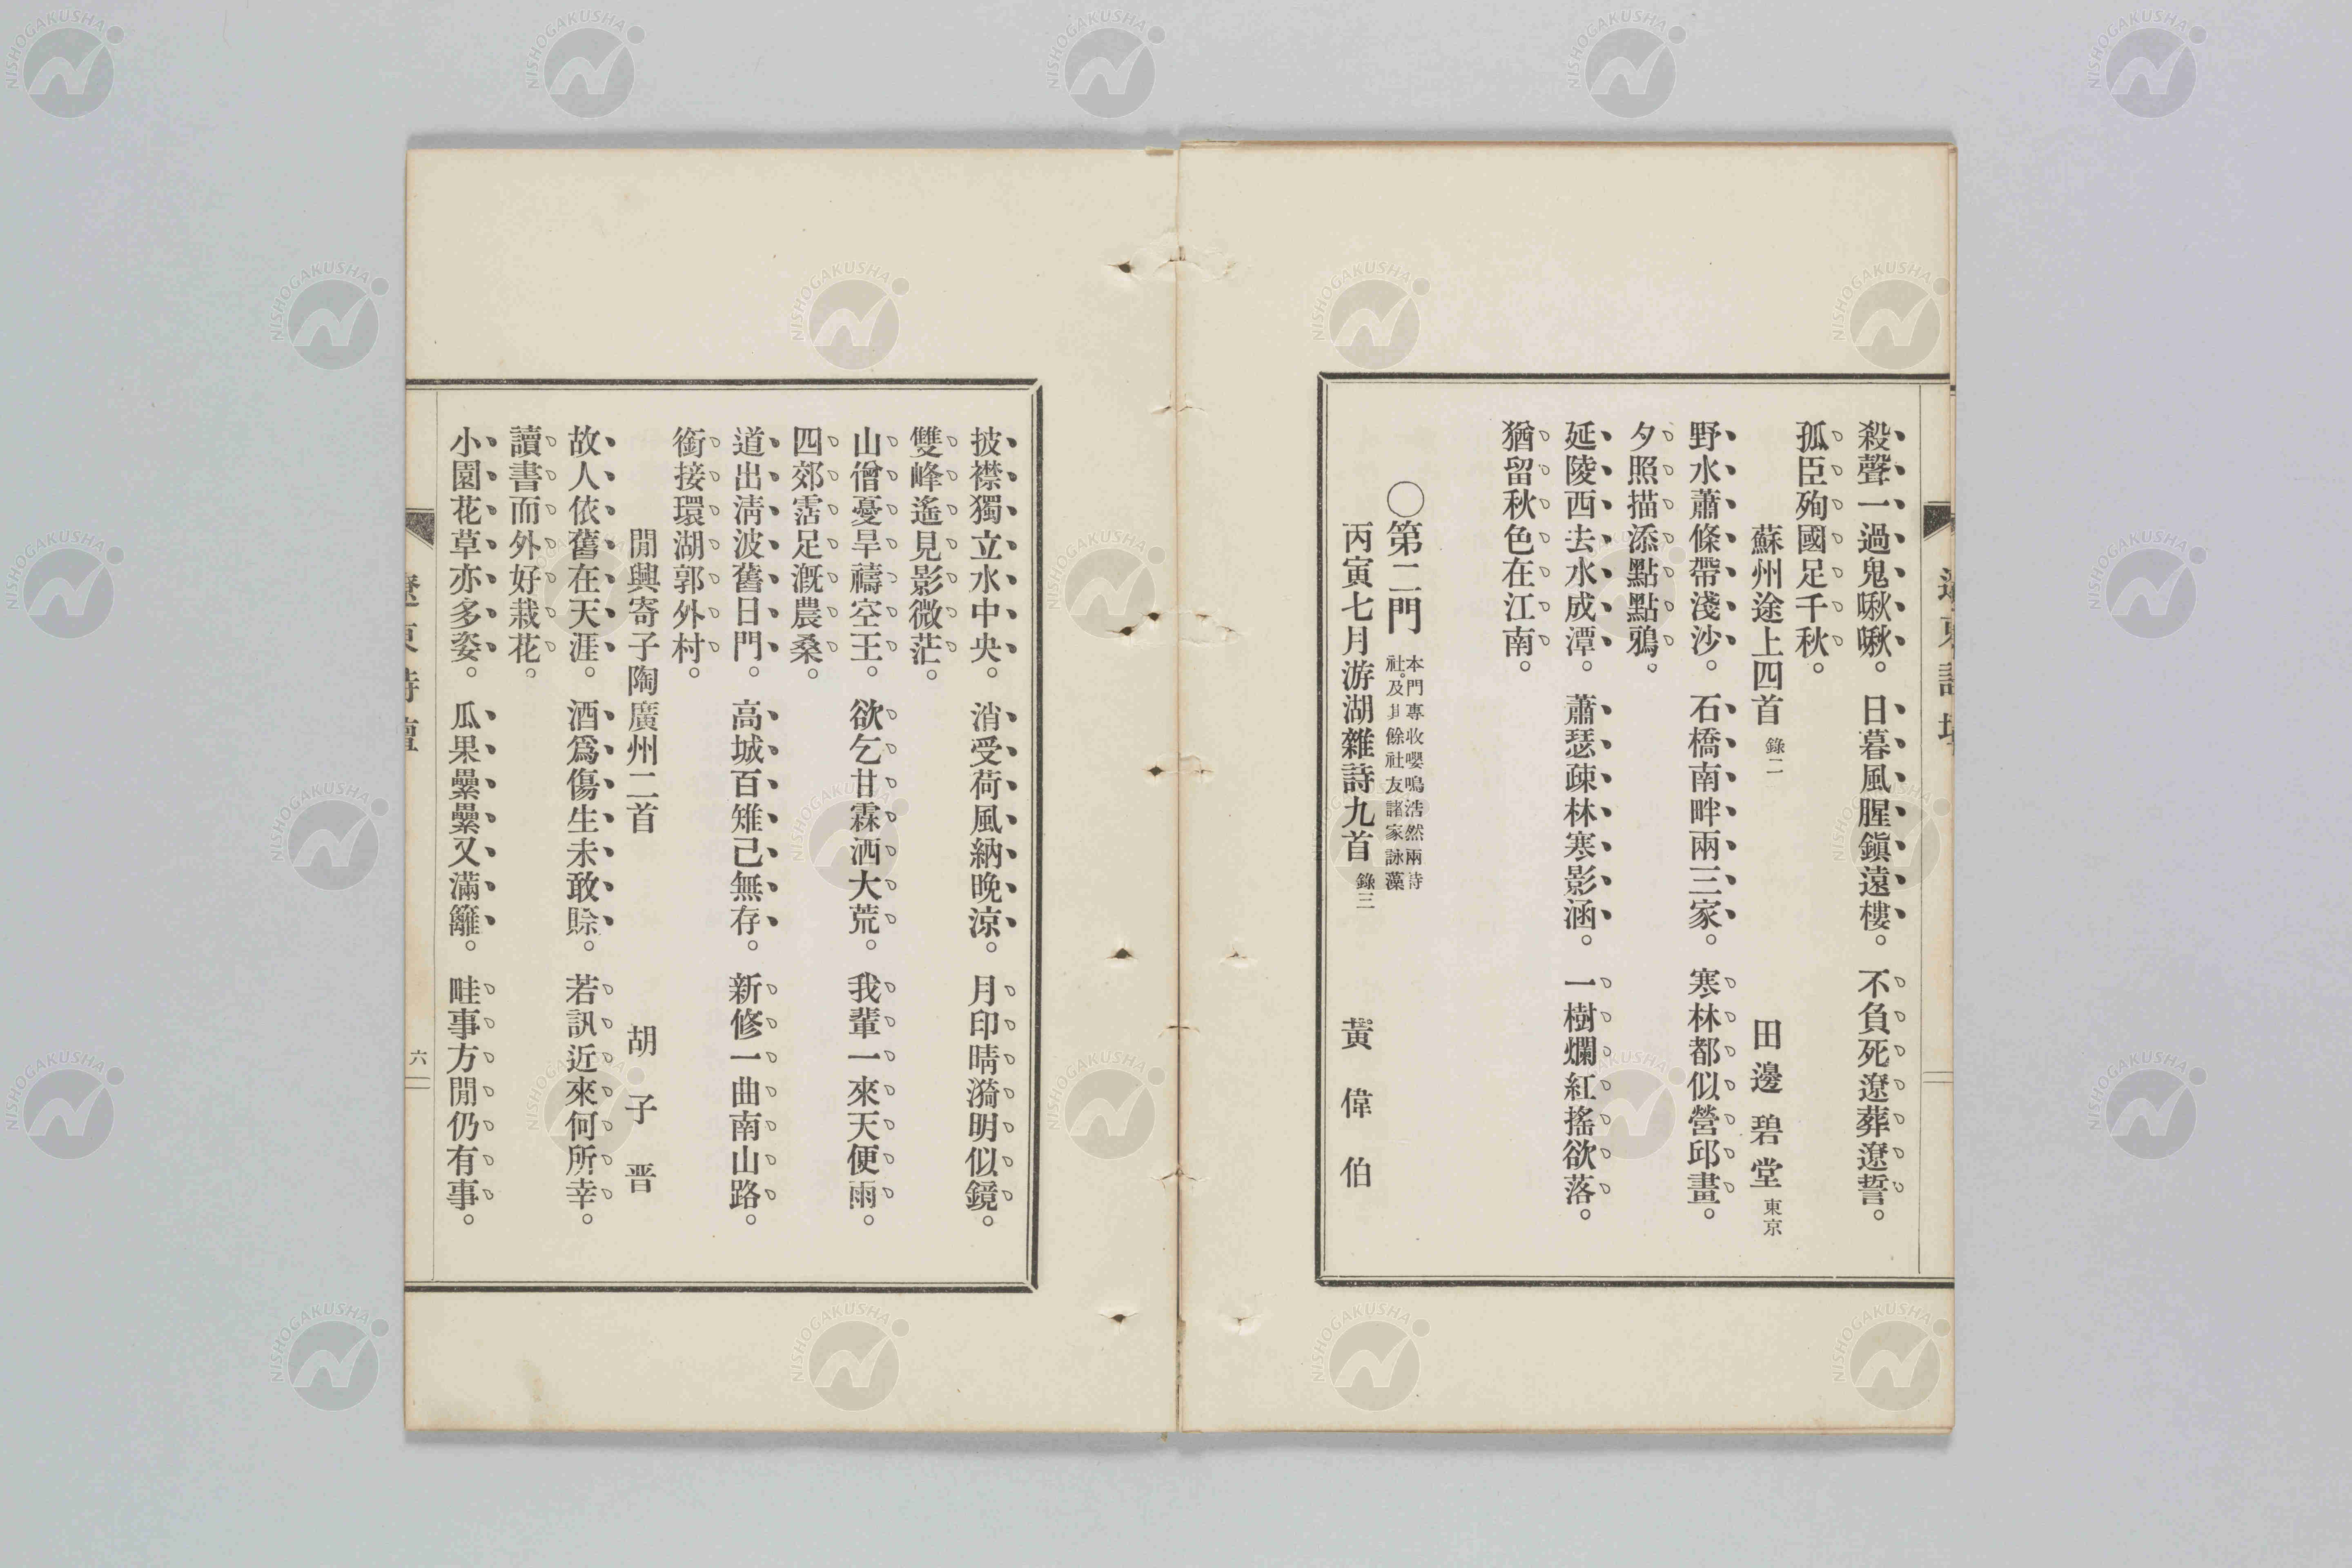 殺聲一過鬼啾啾。日暮風腥鎭遠樓。不負死遼葬遼誓。
孤臣殉國足千秋。
蘇州途上四首 錄二 田邊碧堂 東京
野水蕭條帶淺沙。石橋南畔兩三家。寒林都似營邱畫。
夕照描添點點鴉。
延陵西去水成潭。蕭瑟疎林寒影涵。一樹爛紅搖欲落。
猶留秋色在江南。
〇第二門 本門專收嚶鳴浩然兩詩
社。及其餘社友諸家詠藻
丙寅七月游湖雜詩九首 錄三 黃偉伯
披襟獨立水中央。消受荷風納晚涼。月印晴漪明似鏡。
雙峰遙見影微茫。
山僧憂旱禱空王。欲乞甘霖洒大荒。我輩一來天便雨。
四郊霑足漑農桑。
道出淸波舊日門。高城百雉已無存。新修一曲南山路。
銜接環湖郭外村。
閒興寄子陶廣州二首 胡子晋
故人依舊在天涯。酒爲傷生未敢賒。若訊近來何所幸。
讀書而外好栽花。
小園花草亦多姿。瓜果纍纍又滿籬。畦事方閒仍有事。
遼東詩壇 六
NISHOGAKUSHA